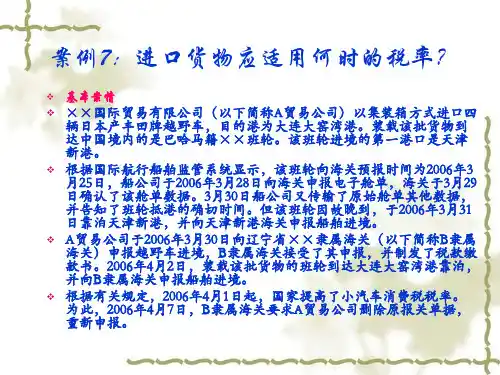 案例7：进口货物应适用何时的税率？
基本案情
××国际贸易有限公司（以下简称A贸易公司）以集装箱方式进口四
辆日本产丰田牌越野车，目的港为大连大窑湾港。装载该批货物到
达中国境内的是巴哈马籍××班轮。该班轮进境的第一港口是天津
新港。
根据国际航行船舶监管系统显示，该班轮向海关预报时间为2006年3
月25日，船公司于2006年3月28日向海关申报电子舱单，海关于3月29
日确认了该舱单数据。3月30日船公司又传输了原始舱单其他数据，
并告知了班轮抵港的确切时间。但该班轮因故晚到，于2006年3月31
日靠泊天津新港，并向天津新港海关申报船舶进境。
A贸易公司于2006年3月30日向辽宁省××隶属海关（以下简称B隶属
海关）申报越野车进境，B隶属海关接受了其申报，并制发了税款缴
款书。2006年4月2日，装载该批货物的班轮到达大连大窑湾港靠泊，
并向B隶属海关申报船舶进境。
根据有关规定，2006年4月1日起，国家提高了小汽车消费税税率。
为此，2006年4月7日，B隶属海关要求A贸易公司删除原报关单据，
重新申报。